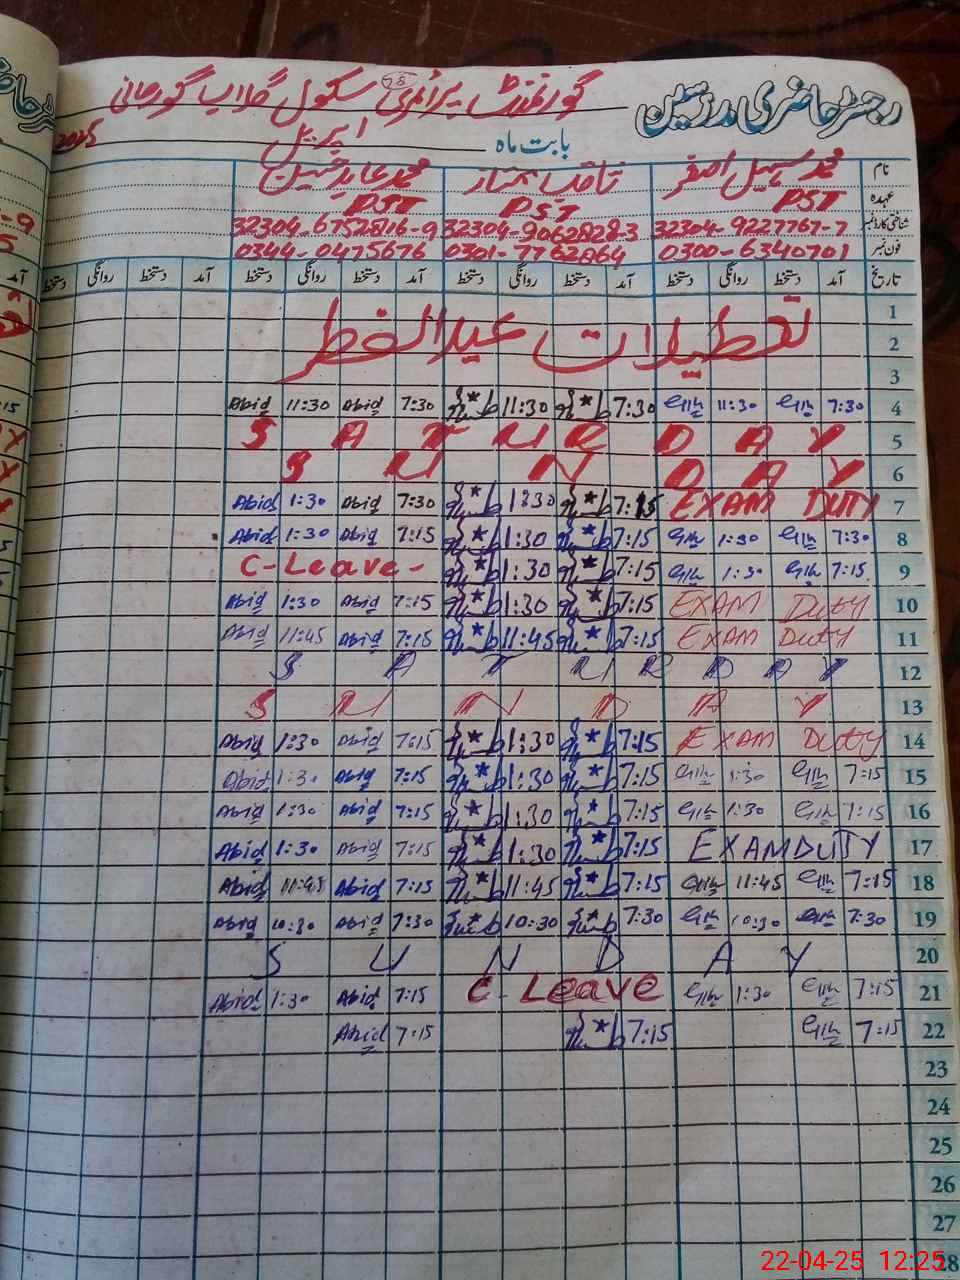 رجسٹر حاضری مدرسین
گورنمنٹ پرائمری سکول گلاب گورمانی
بابت ماہ اپریل 2025
نام محمد سہیل اصغر ثاقب ممتاز محمد عابد حسین
عہدہ PST PST PST
شناختی کارڈ نمبر 32304-9227767-7 32304-9062828-3 32304-6752816-9
فون نمبر 0300-6340701 0301-7762864 0344-0475676
تاریخ آمد دستخط روانگی دستخط آمد دستخط روانگی دستخط آمد دستخط روانگی دستخط آمد دستخط روانگی دستخط
1
2 تعطیلات عیدالفطر
3
4 7:30 11:30 7:30 11:30 7:30 Abid 11:30 Abid
5 SATURDAY
6 SUNDAY
7 EXAM DUTY 7:15 1:30 7:30 Abid 1:30 Abid
8 7:30 1:30 7:15 1:30 7:15 Abid 1:30 Abid
9 7:15 1:30 7:15 1:30 C-Leave-
10 EXAM Duty 7:15 1:30 7:15 Abid 1:30 Abid
11 EXAM Duty 7:15 11:45 7:15 Abid 11:45 Abid
12 SATURDAY
13 SUNDAY
14 EXAM Duty 7:15 1:30 7:15 Abid 1:30 Abid
15 7:15 1:30 7:15 1:30 7:15 Abid 1:30 Abid
16 7:15 1:30 7:15 1:30 7:15 Abid 1:30 Abid
17 EXAM DUTY 7:15 1:30 7:15 Abid 1:30 Abid
18 7:15 11:45 7:15 11:45 7:15 Abid 11:45 Abid
19 7:30 10:30 7:30 10:30 7:30 Abid 10:30 Abid
20 SUNDAY
21 7:15 1:30 C-Leave 7:15 Abid 1:30 Abid
22 7:15 7:15 7:15 Abid
23
24
25
26
27
28
22-04-25 12:25